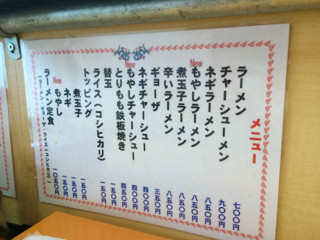 メニュー
ラーメン 七〇〇円
チャーシューメン 九〇〇円
ネギラーメン 八五〇円
New もやしラーメン 八五〇円
煮玉子ラーメン 八五〇円
辛いラーメン 八五〇円
ギョーザ 三五〇円
ネギチャーシュー 四〇〇円
New もやしチャーシュー 四五〇円
とりもも鉄板焼き 四五〇円
替玉 一五〇円
ライス（コシヒカリ） 一五〇円
トッピング
煮玉子 一五〇円
ネギ 一五〇円
New もやし 一五〇円
ラーメン定食 一〇五〇円